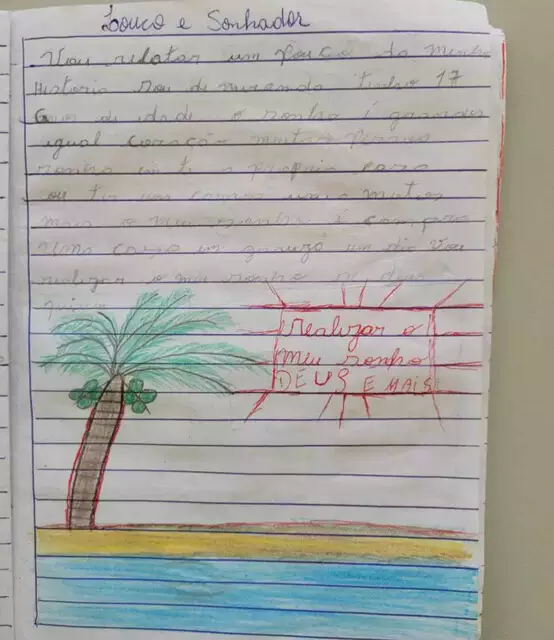 Louco e Sonhador
Vou relatar um pouco da minha
Historia sou de miranda tenho 17
Anos de idade o sonho é grande
igual coração muitas pessoas
sonha em te a propria casa
ou ter um carro uma motos
mais o meu sonho é compra
uma casa em um dia vou
realizar o meu sonho se deus
quiser
realizar o
meu sonho
DEUS E MAIS